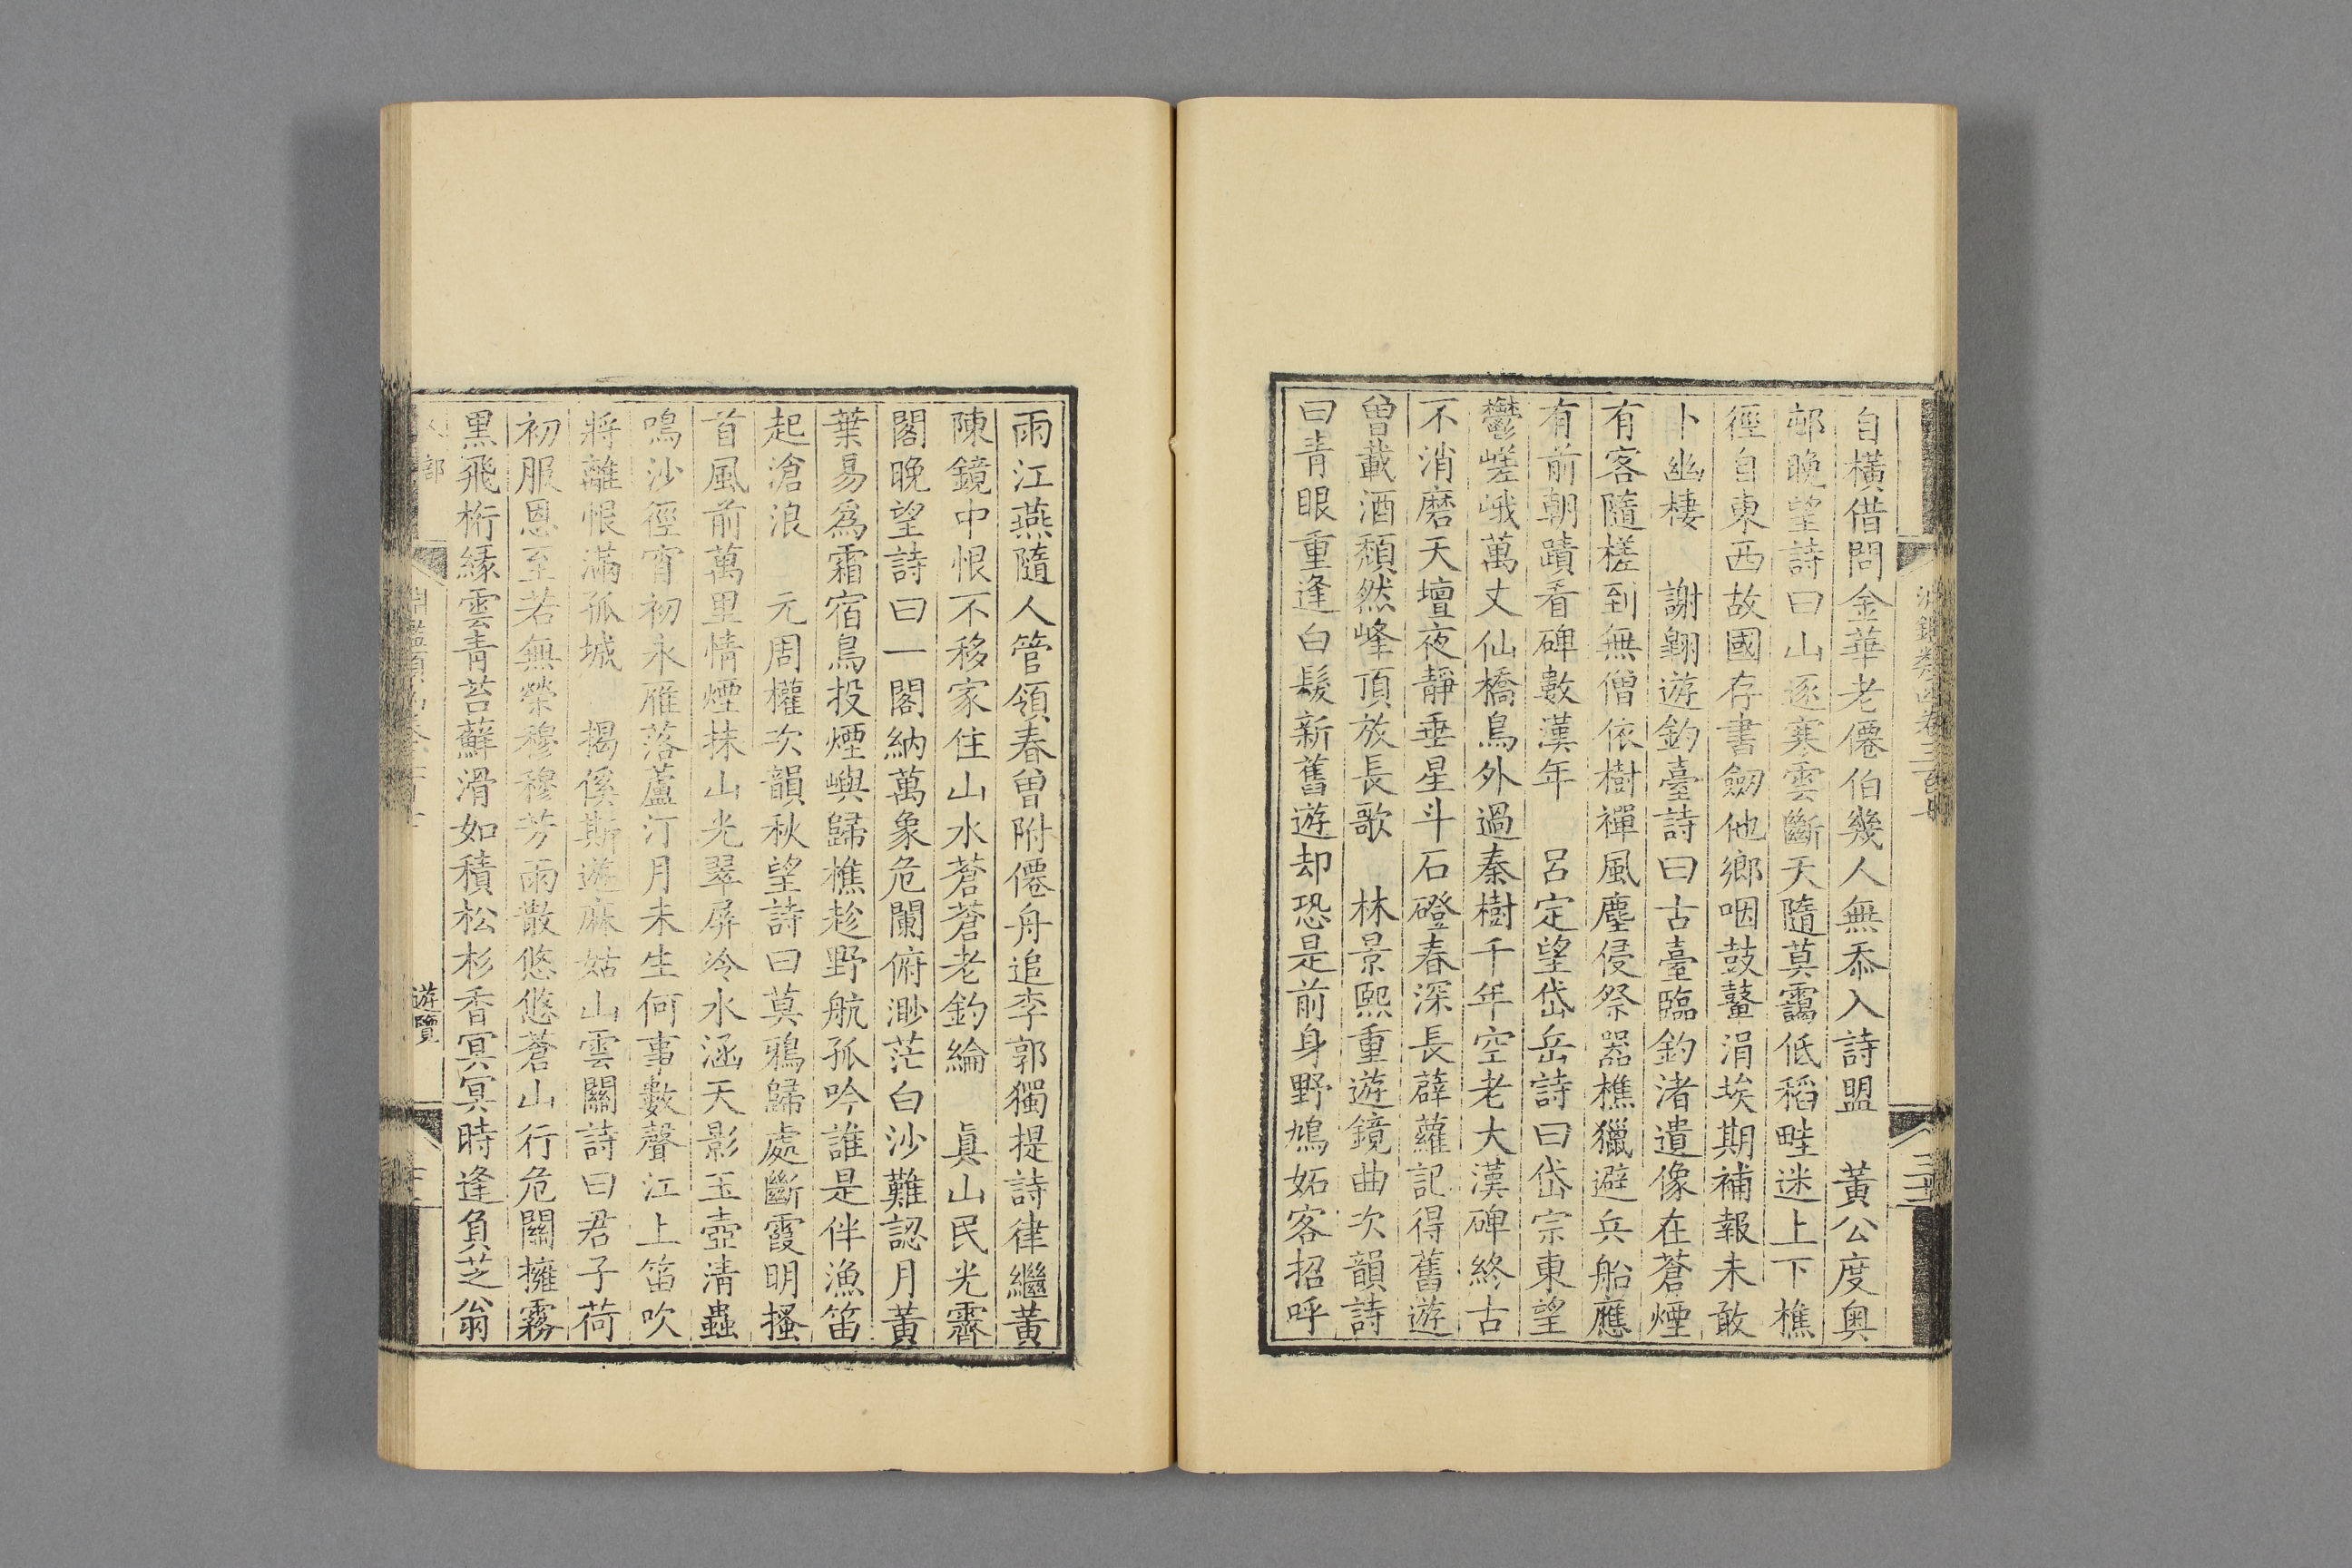 自橫借問金華老僊伯幾人無忝入詩盟　黃公度奧
邨晚望詩曰山逐寒雲斷天隨莫靄低稻畦迷上下樵
徑自東西故國存書劒他鄉咽鼓鼙涓埃期補報未敢
卜幽棲　謝翺遊釣臺詩曰古臺臨釣渚遺像在蒼煙
有客隨槎到無僧依樹禪風塵侵祭器樵獵避兵船應
有前朝蹟看碑數漢年　呂定望岱岳詩曰岱宗東望
鬱嵯峨萬丈仙橋鳥外過秦樹千年空老大漢碑終古
不消磨天壇夜靜垂星斗石磴春深長薜蘿記得舊遊
曾載酒頹然峰頂放長歌　林景熙重遊鏡曲次韻詩
曰青眼重逢白髮新舊遊却恐是前身野鳩妬客招呼
雨江燕隨人管領春曾附僊舟追李郭獨提詩律繼黃
陳鏡中恨不移家住山水蒼蒼老釣綸　眞山民光霽
閣晚望詩曰一閣納萬象危闌俯渺茫白沙難認月黃
葉易爲霜宿鳥投煙嶼歸樵趁野航孤吟誰是伴漁笛
起滄浪　元周權次韻秋望詩曰莫鴉歸處斷霞明搔
首風前萬里情煙抹山光翠屏冷水涵天影玉壺清蟲
鳴沙徑宵初永雁落蘆汀月未生何事數聲江上笛吹
將離恨滿孤城　揭傒斯遊麻姑山雲關詩曰君子荷
初服恩至若無榮穆穆芳雨散悠悠蒼山行危關擁霧
黑飛桁緣雲青苔蘚滑如積松杉香冥冥時逢負芝翁
遊覽